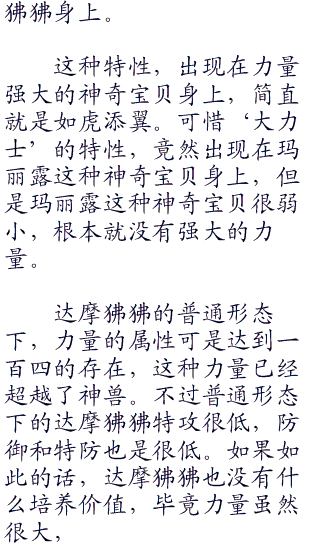 狒狒身上。
这种特性，出现在力量
强大的神奇宝贝身上，简直
就是如虎添翼。可惜‘大力
士’的特性，竟然出现在玛
丽露这种神奇宝贝身上，但
是玛丽露这种神奇宝贝很弱
小，根本就没有强大的力
量。
达摩狒狒的普通形态
下，力量的属性可是达到一
百四的存在，这种力量已经
超越了神兽。不过普通形态
下的达摩狒狒特攻很低，防
御和特防也是很低。如果如
此的话，达摩狒狒也没有什
么培养价值，毕竟力量虽然
很大，